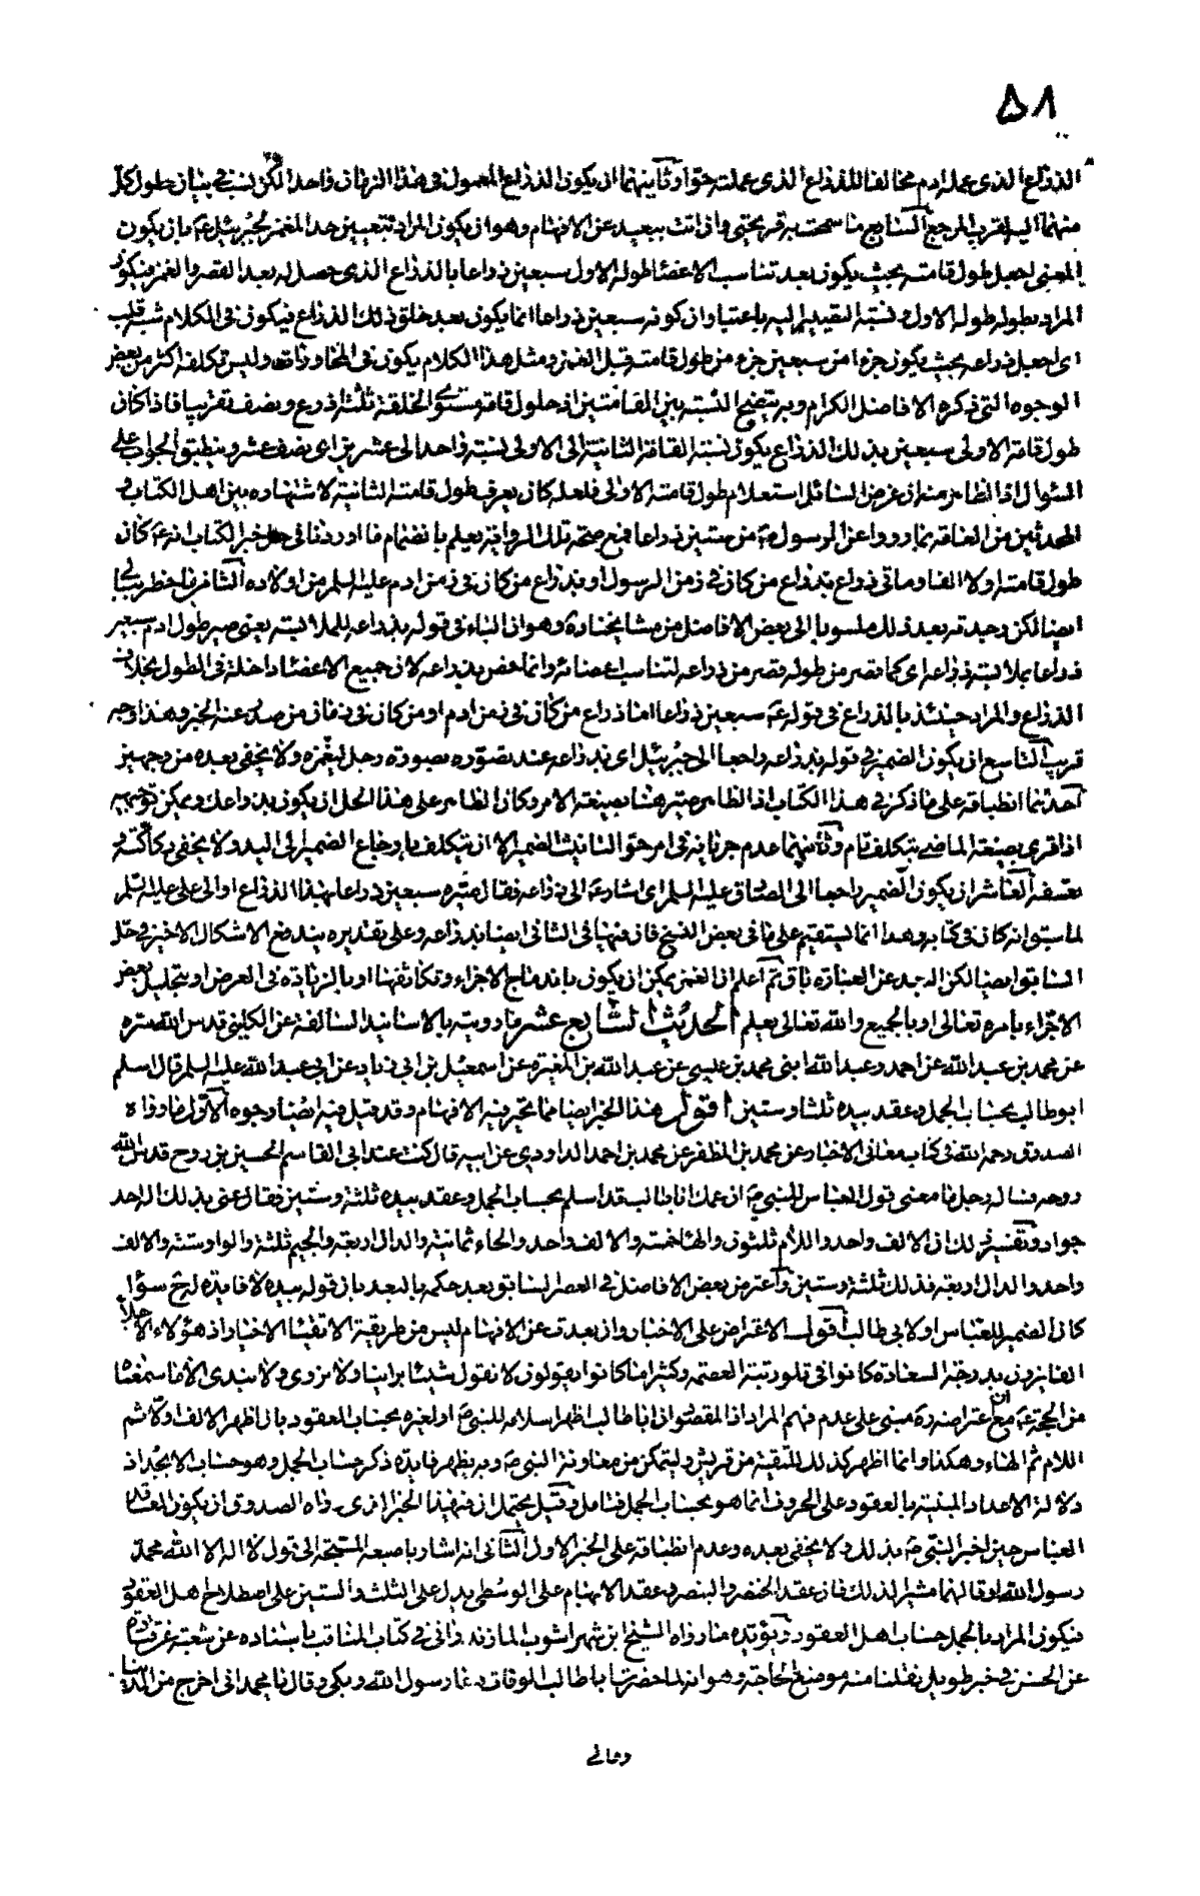 ٥٨
الذراع الذى عمله ادم مخالفا للذراع الذى عملته حوا وثانيهما ان يكون الذراع المعمول فى هذا الزمان واحدا لكن نسب فى بيان طول كل
منهما اليه لقرب المرجع السابع ما سمحت به قريحتى وان اتت ببعيد عن الافهام وهو ان يكون المراد تعيين حد الغمز لجبرئيل عه بان يكون
المعنى اجعل طول قامته بحيث يكون بعد تناسب الاعضا طوله الاول سبعين ذراعا بالذراع الذى حصل له بعد القصر والغمز فيكون
المراد بطوله طوله الاول ونسبة التقييد اليه باعتبار ان كونه سبعين ذراعا انما يكون بعد خلق ذلك الذراع فيكون فى الكلام شبه قلب
اى اجعل ذراعه بحيث يكون جزء من سبعين جزء من طول قامته قبل الغمز ومثل هذا الكلام يكون فى المحاورات وليس تكلفه اكثر من بعض
الوجوه التى ذكره الافاضل الكرام وبه يتضح النسبة بين القامتين اذ طول قامة مستوى الخلقة ثلثة اذرع ونصف تقريبا فاذا كان
طول قامة الاولى سبعين بذلك الذراع يكون نسبة القامة الثانية الى الاولى نسبة واحد الى عشرين اى نصف عشر وينطبق الجواب على
السؤال اذ الظاهر منه ان غرض السائل استعلام طول قامته الاولى فلعله كان يعرف طول قامته الثانية لاشتهاره بين اهل الكتاب و
المحدثين من العامة بما رووا عن الرسول ص من ستين ذراعا فمع صحة تلك الرواية يعلم بانضمام ما اوردنا فى حل خبر الكتاب انه عه كان
طول قامته اولا الفا ومائتى ذراع بذراع من كان فى زمن الرسول او بذراع من كان فى زمن ادم عليه السلم من اولاده الثامن ما خطر ببالى
ايضا لكن وجدته بعد ذلك منسوبا الى بعض الافاضل من مشايخنا ره وهو ان الباء فى قوله بذراعه للملابسة يعنى صير طول ادم سبعين
ذراعا بملابسة ذراعه اى كما قصر من طوله قصر من ذراعه لتناسب اعضائه وانما خص بذراعه لان جميع الاعضاء داخلة فى الطول بخلاف
الذراع والمراد حينئذ بالذراع فى قوله عه سبعين ذراعا اما ذراع من كان فى زمن ادم او من كان فى زمان من صدر عنه الخبر وهذا وجه
قريب التاسع ان يكون الضمير فى قوله بذراعه راجعا الى جبرئيل اى بذراعه عند تصوره بصورة رجل ليغمزه ولا يخفى بعده من وجهين
احدهما انطباقه على ما ذكر فى هذا الكتاب اذ الظاهر صيره هنا بصيغة الامر وكان الظاهر على هذا الحل ان يكون بذراعك ويمكن توجيهه
اذا قرى بصيغة الماضى بتكلف تام وثانيهما عدم جريانه فى امر حوا لتانيث الضمير الا ان يتكلف بارجاع الضمير الى اليد ولا يخفى ركاكته و
تعسفه العاشر ان يكون الضمير راجعا الى الصادق عليه السلم اى اشار عه الى ذراعه فقال صيره سبعين ذراعا بهذا الذراع او الى على عليه السلم
لما سبق انه كان فى كتابه وهذا انما يستقيم على ما فى بعض النسخ فان فيها فى الثانى ايضا بذراعه وعلى تقديره يندفع الاشكال الاخير فى حل
السابق ايضا لكن البعد عن العبارة باق ثم اعلم ان الغمز يمكن ان يكون باندماج الاجزاء وتكاثفها او بالزيادة فى العرض او بتحليل بعض
الاجزاء بامره تعالى او بالجميع والله تعالى يعلم الحديث السابع عشر ما رويته بالاسانيد السالفة عن الكلينى قدس الله سره
عن محمد بن عبد الله عن احمد وعبد الله ابنى محمد بن عيسى عن عبد الله بن المغيرة عن اسمعيل بن ابى زياد عن ابى عبد الله عليه السلم قال اسلم
ابو طالب بحساب الجمل وعقد بيده ثلثا وستين اقول هذا الخبر ايضا مما تحير فيه الافهام وقد قيل فيه ايضا وجوه الاول ما رواه
الصدوق رحمه الله فى كتاب معانى الاخبار عن محمد بن المظفر عن محمد بن احمد الداودى عن ابيه قال كنت عند ابى القاسم الحسين بن روح قدس الله
روحه فساله رجل ما معنى قول العباس للنبى ص ان عمك ابا طالب قد اسلم بحساب الجمل وعقد بيده ثلثة وستين فقال عنى بذلك اله احد
جواد وتفسير ذلك ان الالف واحد واللام ثلثون والهاء خمسة والالف واحد والحاء ثمانية والدال اربعة والجيم ثلثة والواو ستة والالف
واحد والدال اربعة فذلك ثلثة وستين واعترض بعض الافاضل فى العصر السابق بعد حكمه بالبعد بان قوله بيده لا فايدة له ح سوا
كان الضمير للعباس او لابى طالب اقول الاعتراض على الاخبار وان بعدت عن الافهام ليس من طريقة الاتقياء الاخيار اذ هؤلاء الاجلاء
الفايزون بدرجة السعادة كانوا فى تلو رتبة العصمة وكثيرا ما كانوا يقولون لا نقول شيئا براينا ولا نروى ولا نبدى الا ما سمعنا
من الحجة عه مع ان اعتراضه ره مبنى على عدم فهم المراد اذ المقصود ان ابا طالب اظهر اسلامه للنبى ص او لغيره بحساب العقود بان اظهر الالف اولا ثم
اللام ثم الهاء وهكذا وانما اظهر كذلك للتقية من قريش وليتمكن من معاونة النبى ص وبه يظهر فايدة ذكر حساب الجمل وهو حساب الابجد اذ
دلالة الاعداد المبنية بالعقود على الحروف انما هو بحساب الجمل فتامل وقيل يحتمل ان فى هذا الخبر الذى رواه الصدوق ان يكون العاقد
العباس حين اخبر النبى ص بذلك ولا يخفى بعده وعدم انطباقه على الخبر الاول الثانى انه اشار باصبعه المسبحة الى قول لا اله الا الله محمد
رسول الله او قالهما مشيرا لذلك فان عقد الخنصر والبنصر وعقد الابهام على الوسطى يدل على الثلث والستين على اصطلاح اهل العقود
فيكون المراد بالجمل حساب اهل العقود ويؤيده ما رواه الشيخ ابن شهراشوب المازندرانى فى كتاب المناقب باسناده عن شعبة عن قتادة
عن الحسن فى خبر طويل نقلنا منه موضع الحاجة وهو انه لما حضرت ابا طالب الوفات دعا رسول الله وبكى وقال يا محمد انى اخرج من الدنيا
ومالى